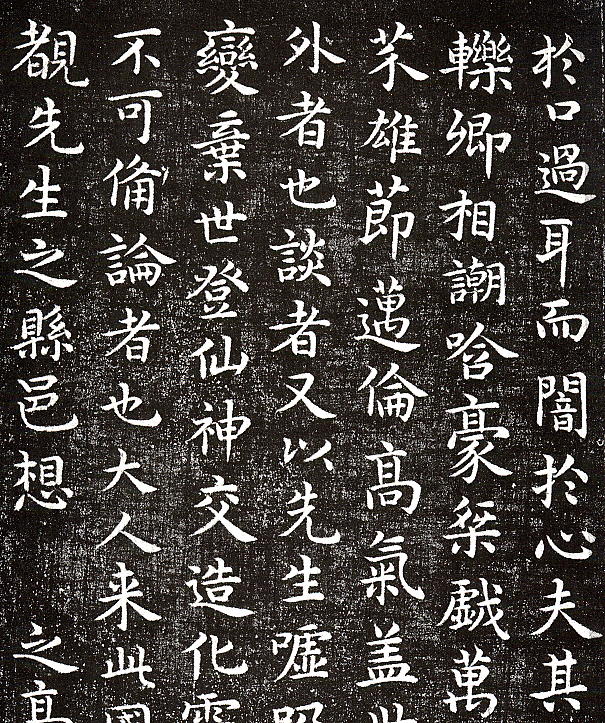 於口過耳而闇於心夫其
轢卿相謿哈豪桀戯萬
芥雄莭邁倫髙氣盖
外者也談者又以先生嘘
變棄世登仙神交造化
不可俻論者也大人来此
覩先生之縣邑想 之髙